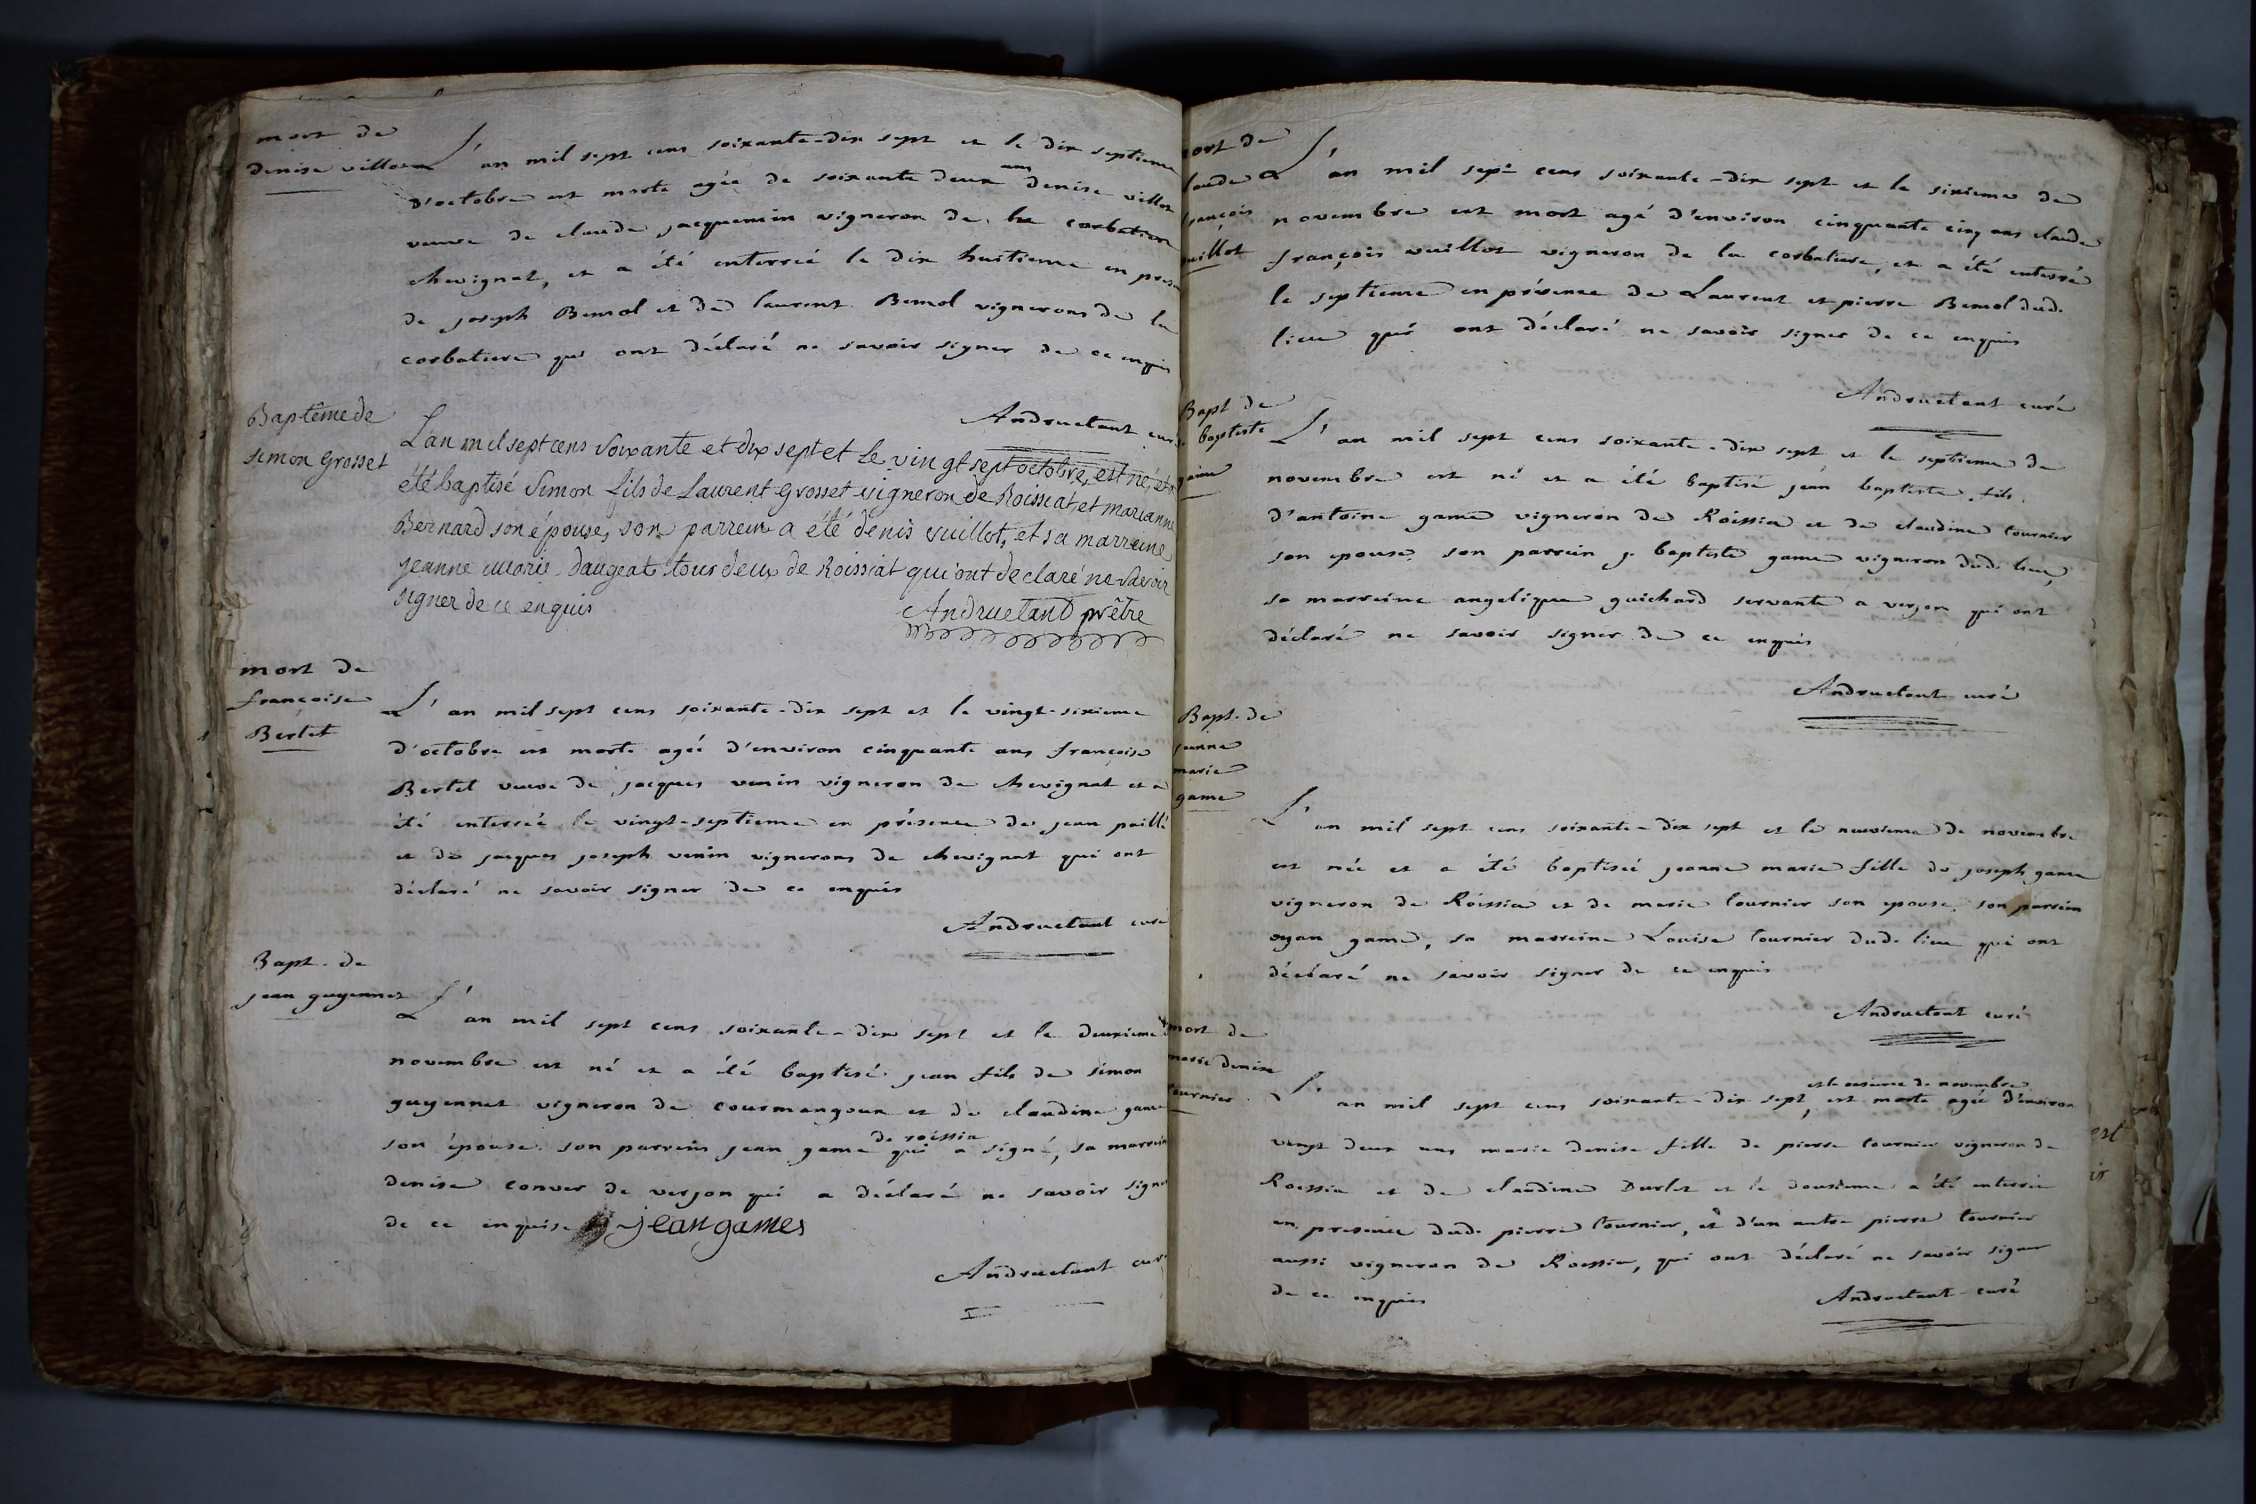 mort de
denise villot
L'an mil sept cens soixante-dix sept et le dix septieme
d'octobre est morte agée de soixante deux ans denise villot
veuve de claude jacquemin vigneron de la corbatiere
chevignat, et a été enterrée le dix huitieme en presen
de joseph Bemol et de laurent Bemol vignerons de la
corbatiere qui ont déclaré ne savoir signer de ce enquis
Andruetant curé
Baptême de
simon Grosset
L'an mil sept cens soixante et dix sept et le vingt sept octobre, est né, et a
été baptisé Simon fils de Laurent Grosset vigneron de Roissiat, et marianne
Bernard son épouse, son parrein a été denis vuillot, et sa marreine
jeanne marie daugeat tous deux de Roissiat qui ont declaré ne savoir
signer de ce enquis
Andruetant prêtre
mort de
françoise
Bertet
L'an mil sept cens soixante-dix sept et le vingt-sixieme
d'octobre est morte agée d'environ cinquante ans françoise
Bertet veuve de jacques venin vigneron de chevignat et a
été enterrée le vingt-septieme en présence de jean paillé
et de jacques joseph venin vignerons de chevignat qui ont
déclaré ne savoir signer de ce enquis
Andruetant curé
Bapt. de
jean guyennet
L'an mil sept cens soixante-dix sept et le deuxieme
novembre est né et a été baptisé jean fils de simon
guyennet vigneron de courmangoux et de claudine game
son épouse. son parrein jean game de roissia qui a signé, sa marrein
denise convers de verjon qui a déclaré ne savoir signer
de ce enquise jean games
Andruetant curé
mort de
claude
françois
vuillot
L'an mil sept cens soixante-dix sept et le sixieme de
novembre est mort agé d'environ cinquante cinq ans claude
françois vuillot vigneron de la corbatiere, et a été enterré
le septieme en présence de Laurent et pierre Bemol dud.
lieu qui ont déclaré ne savoir signer de ce enquis
Andruetant curé
Bapt de
j. baptiste
game
L'an mil sept cens soixante-dix sept et le septieme de
novembre est né et a été baptisé jean baptiste fils
d'antoine game vigneron de Roissia et de claudine tournier
son epouse, son parrein j. baptiste game vigneron dud. lieu,
sa marreine angelique guichard servante a verjon qui ont
déclaré ne savoir signer de ce enquis
Andruetant curé
Bapt. de
jeanne
marie
game
L'an mil sept cens soixante-dix sept et le neuvieme de novembre
est née et a été baptisée jeanne marie fille de joseph game
vigneron de Roissia et de marie tournier son epouse, son parrein
oyan game, sa marreine Louise tournier dud. lieu qui ont
déclaré ne savoir signer de ce enquis
Andruetant curé
mort de
marie denise
tournier
L'an mil sept cens soixante-dix sept et le onsieme de novembre, est morte agée d'environ
vingt deux ans marie denise fille de pierre tournier vigneron de
Roissia et de claudine Durlet et le dousieme a été enterrée
en presence dud. pierre tournier, et d'un autre pierre tournier
aussi vigneron de Roissia, qui ont déclaré ne savoir signer
de ce enquis
Andruetant curé